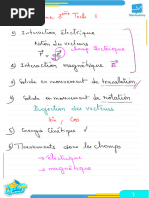 2ème Tests :
1) Interaction électrique
Notion des vecteurs
champ électrique
2) Interaction magnétique B
3) Solide en mouvement de translation
4) Solide en mouvement de rotation
Projection des vecteurs
sin, cos
5) Énergie Cinétique
6) Mouvements dans les champs
→ électrique
→ magnétique
1